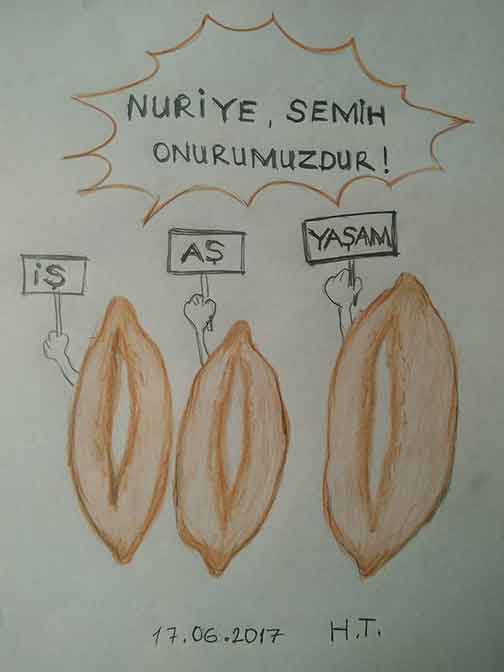 NURİYE, SEMİH
ONURUMUZDUR!
İŞ
AŞ
YAŞAM
17.06.2017 H.T.